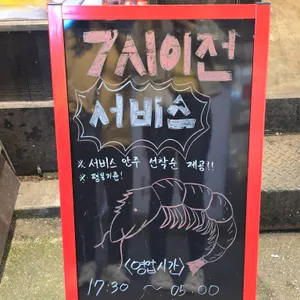 7시이전
서비스
※ 서비스 안주 선착순 제공!!
※ 평일기준!
<영업시간>
17:30 ~ 05:00